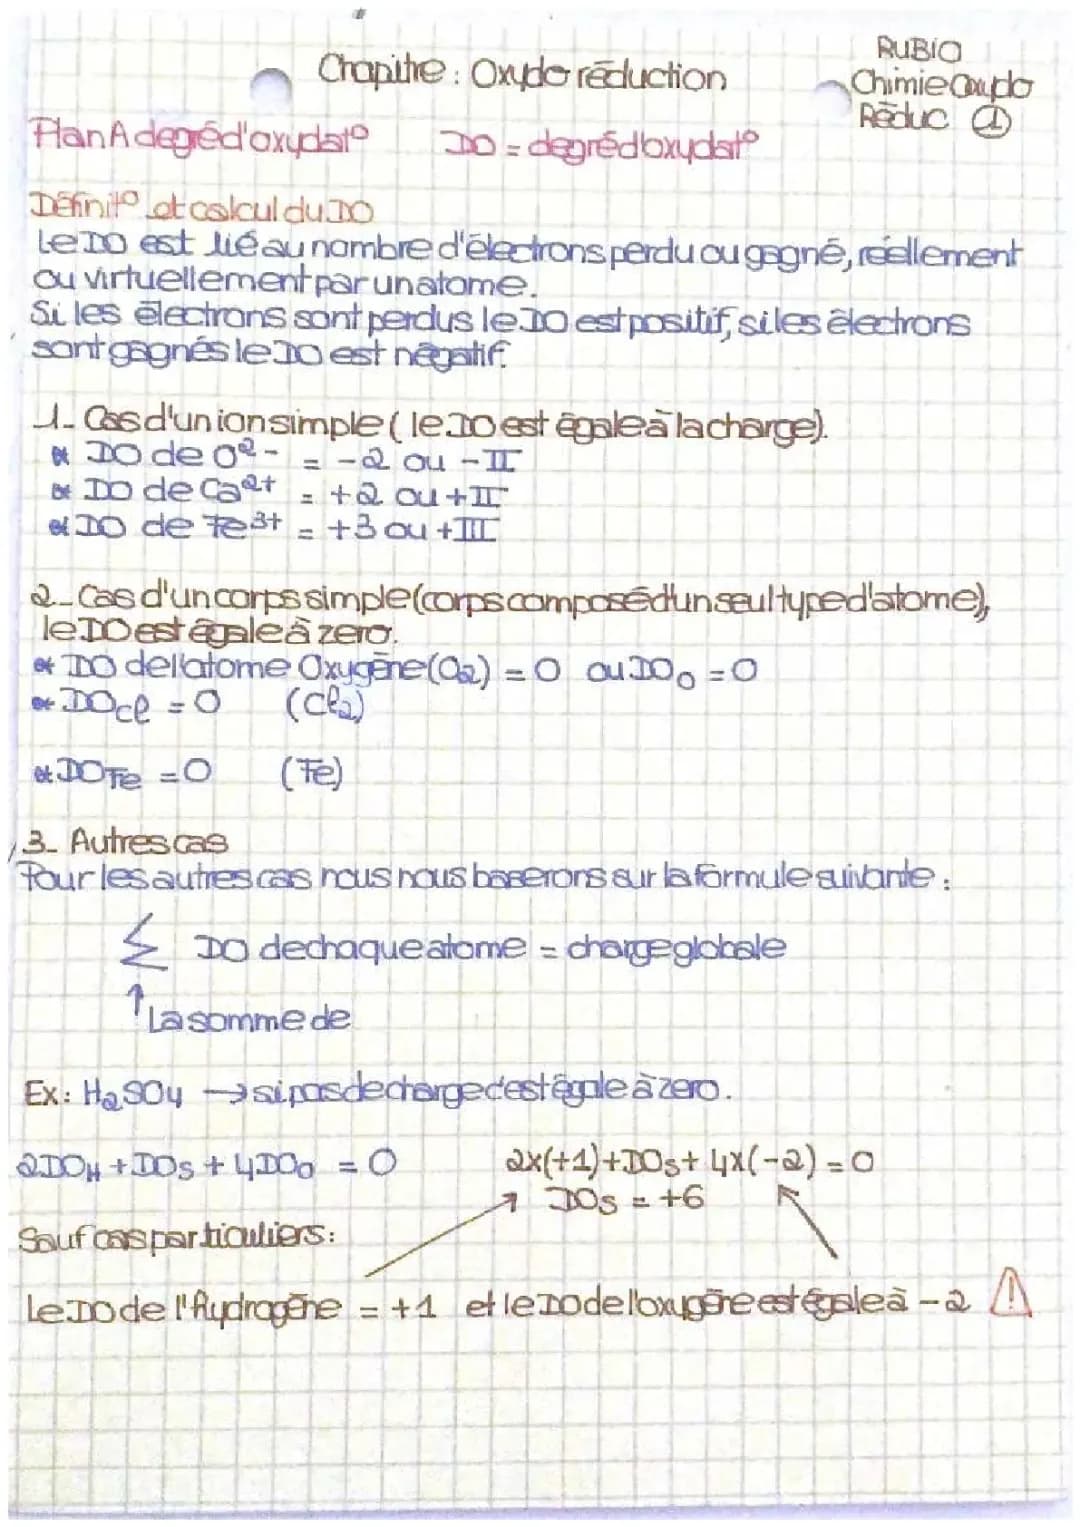 RUBIO
Chapitre : Oxydo réduction
Chimie Oxydo
Réduc ①
Plan A degré d'oxydat° DO = degré d'oxydat°
Définit° et calcul du DO
Le DO est lié au nombre d'électrons perdu ou gagné, réellement
ou virtuellement par un atome.
Si les électrons sont perdus le DO est positif, si les électrons
sont gagnés le DO est négatif.
1- Cas d'un ion simple ( le DO est égale à la charge).
* DO de O²⁻ = -2 ou -II
* DO de Ca²⁺ = +2 ou +II
* DO de Fe³⁺ = +3 ou +III
2- Cas d'un corps simple (corps composé d'un seul type d'atome),
le DO est égale à zero.
* DO de l'atome Oxygène (O₂) = 0 ou DO₀ = 0
* DOCl = 0 (Cl₂)
* DOFe = 0 (Fe)
3- Autres cas
Pour les autres cas nous nous baserons sur la formule suivante :
Σ DO de chaque atome = charge globale
↑ La somme de
Ex : H₂SO₄ → si pas de charge c'est égale à zero.
2DOH + DOS + 4DOO = 0 2x(+1) + DOS + 4x(-2) = 0
DOS = +6
Sauf cas particuliers :
Le DO de l'Hydrogène = +1 et le DO de l'oxygène est égale à -2 ⚠